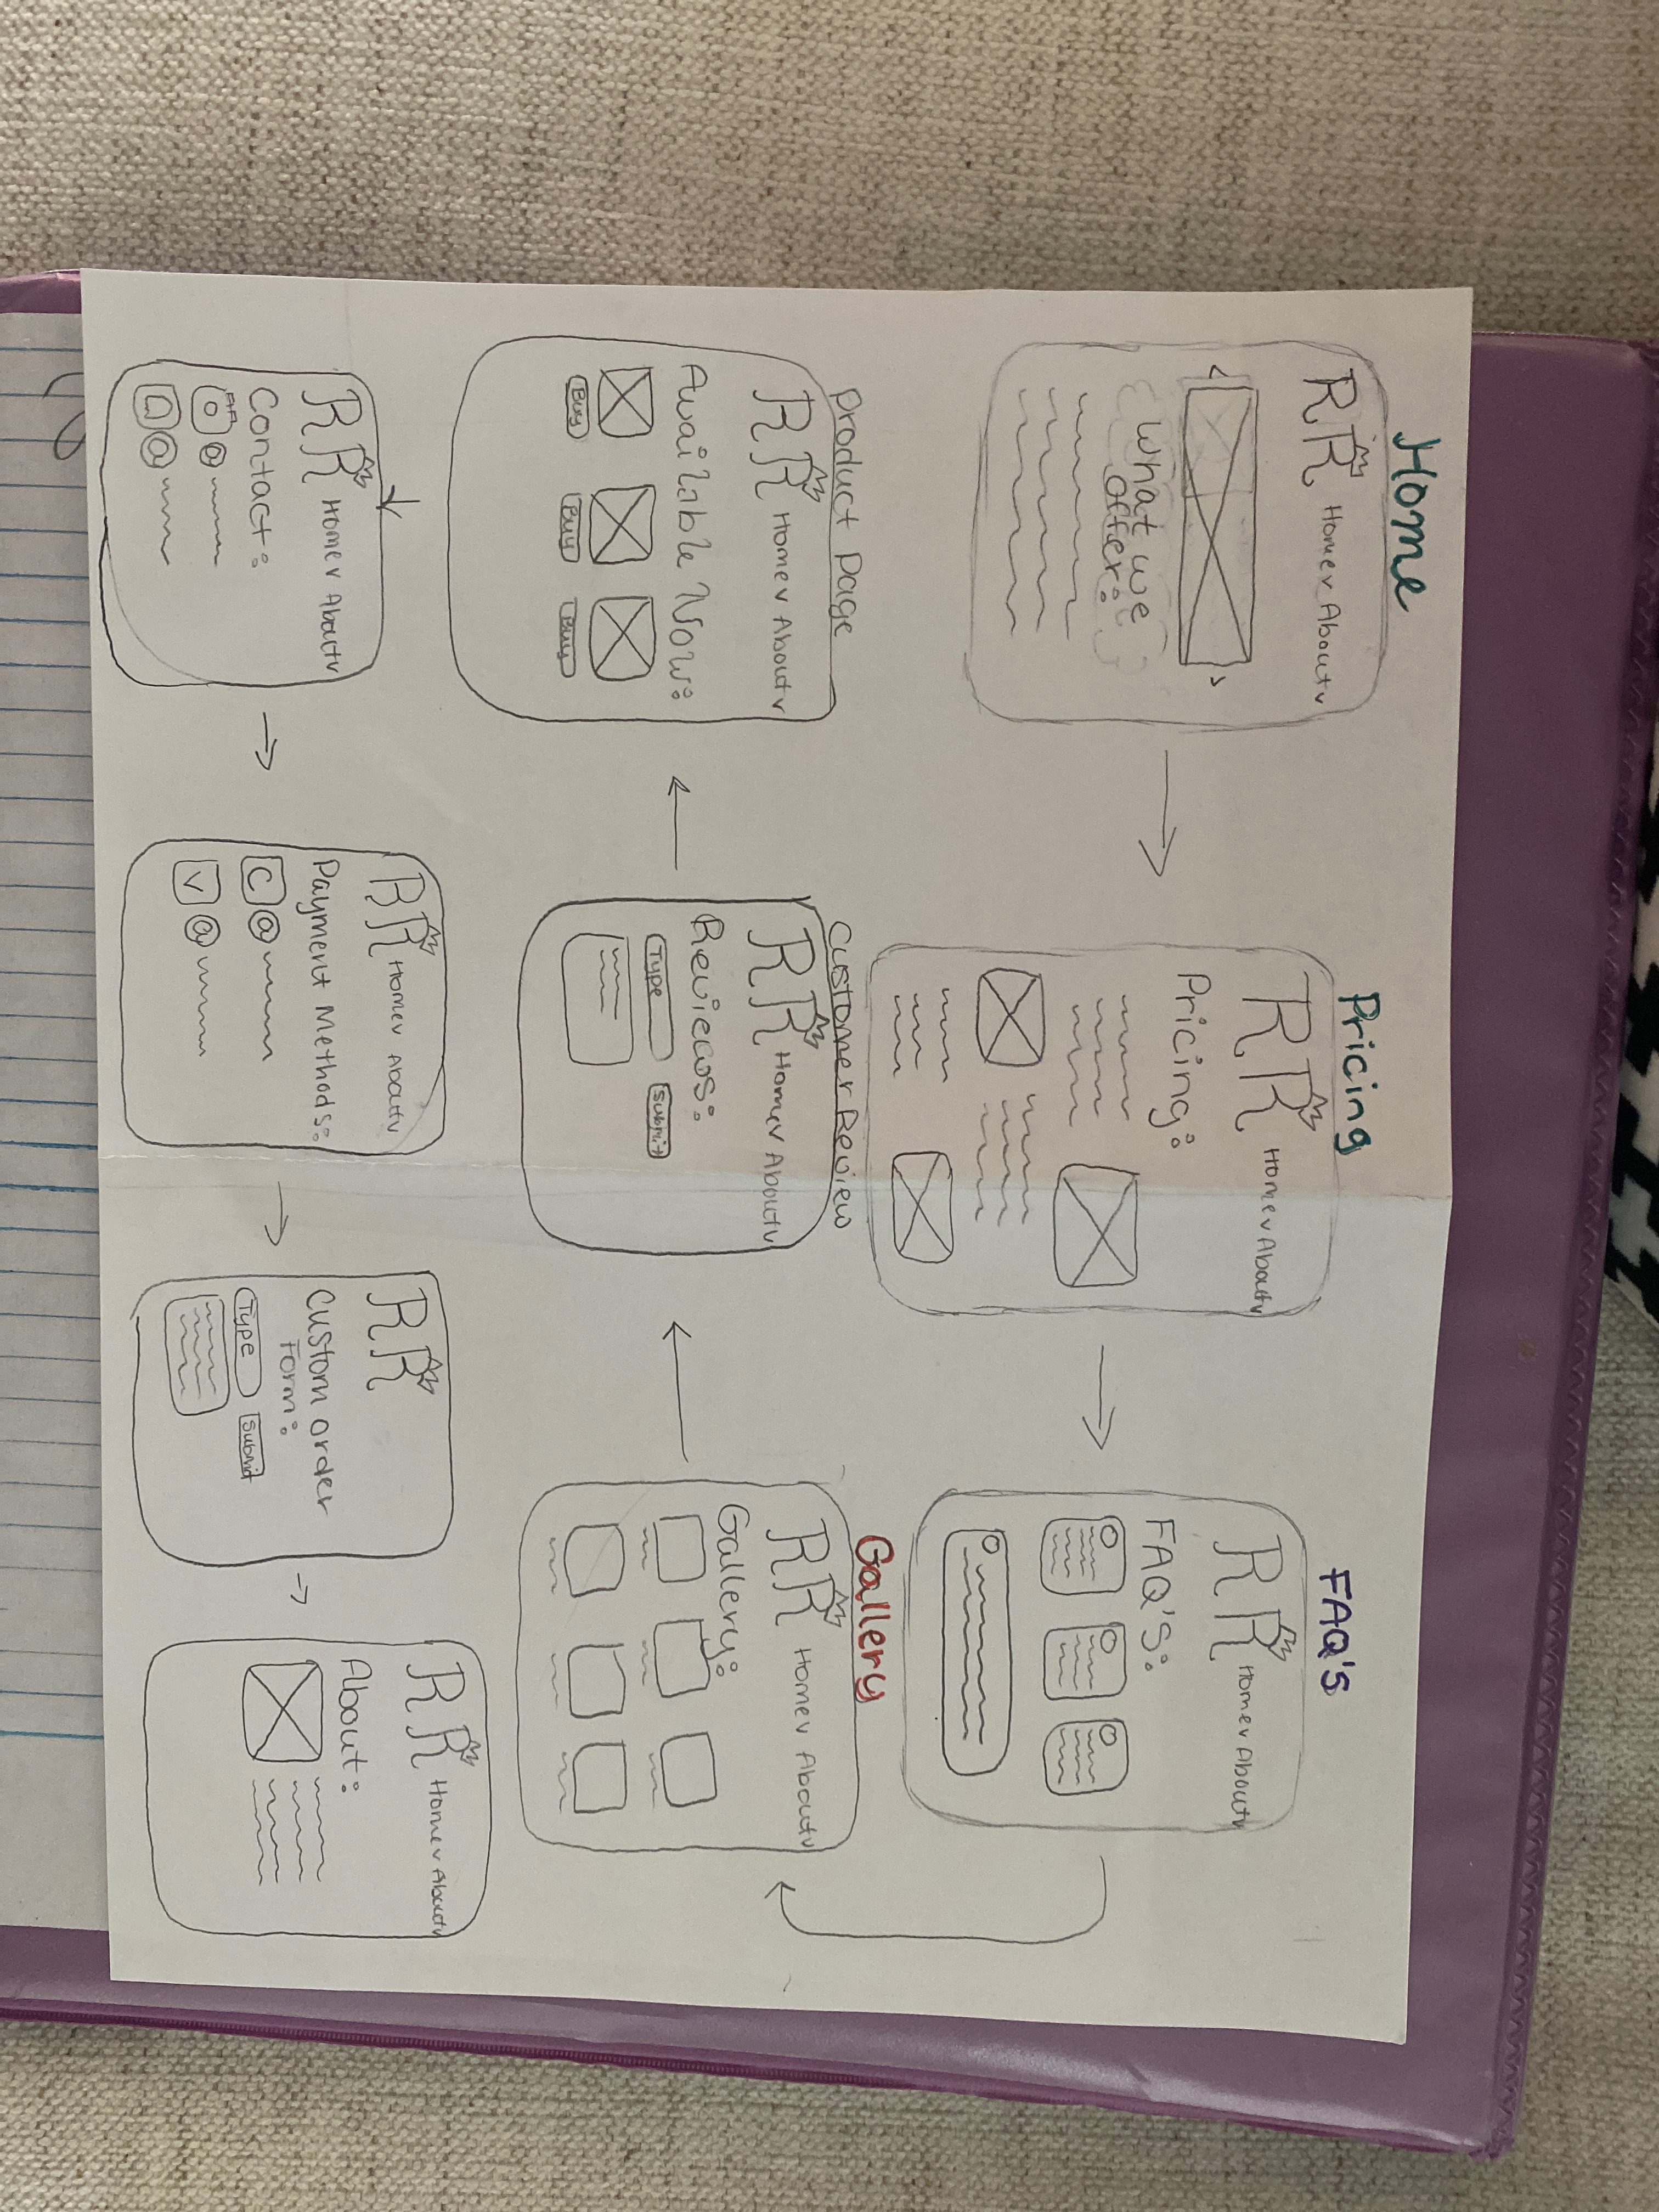 Home
RR Home v About v
What we
offer:
Pricing
RR Home v About v
Pricing:
FAQ's
RR Home v About v
FAQ'S:
Product Page
RR Home v About v
Available Now:
Buy Buy Buy
Customer Review
RR Home v About v
Reviews:
Type Submit
Gallery
RR Home v About v
Gallery:
RR Home v About v
Contact:
@
@
RR Home v About v
Payment Methods:
C @
V @
RR
Custom order
Form:
Type Submit
RR Home v About v
About: